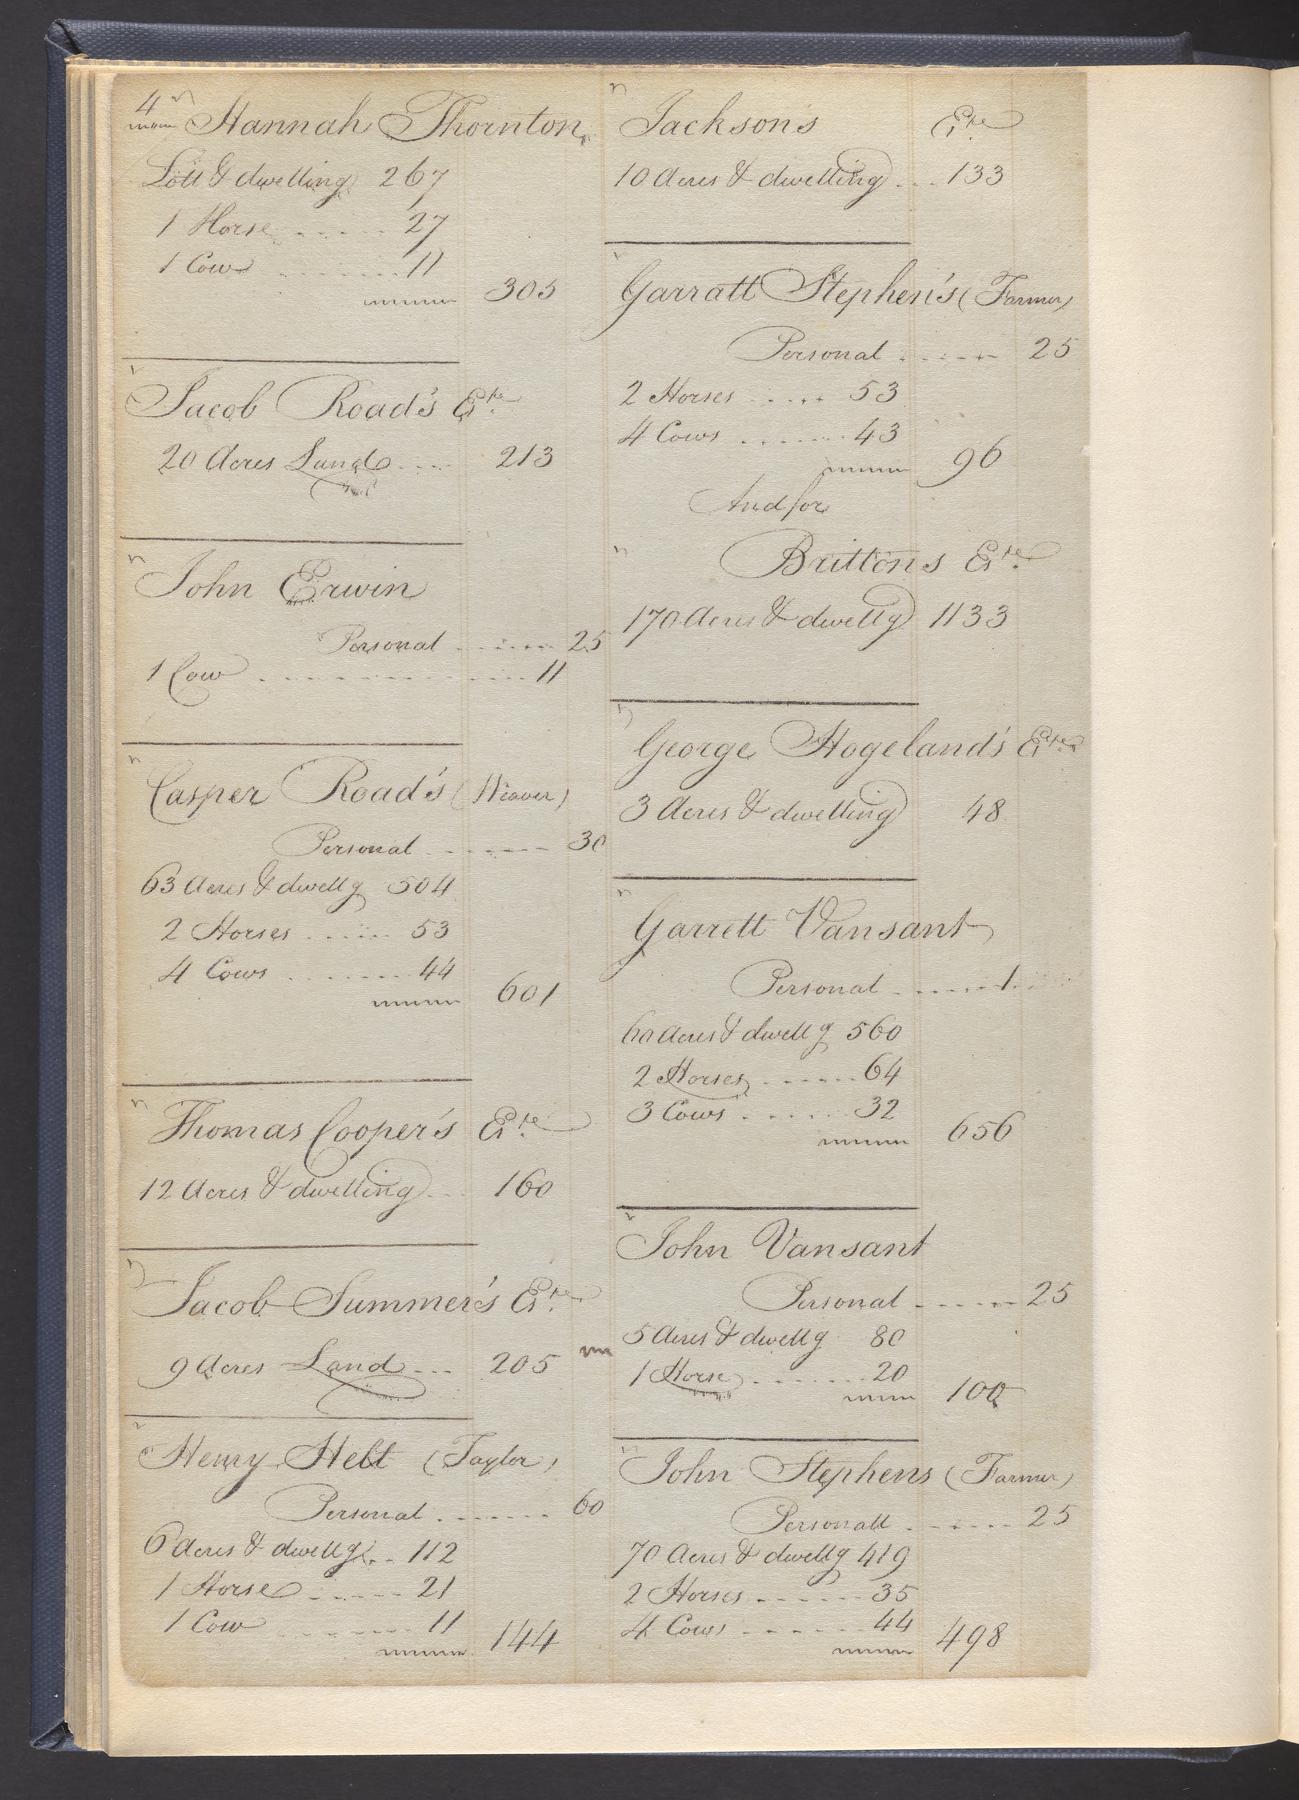 4
Hannah Thornton
Lott & dwelling 267
1 Horse ..... 27
1 Cow ....... 11
305
Jacob Road's Este.
20 Acres Land .... 213
John Erwin
Personal ...... 25
1 Cow ................ 11
Casper Road's (Weaver)
Personal ....... 30
63 Acres & dwellg 504
2 Horses ...... 53
4 Cows ....... 44
601
Thomas Cooper's Este.
12 Acres & dwelling ... 160
Jacob Summer's Este.
9 Acres Land ... 205
Henry Helt (Taylor)
Personal ....... 60
6 Acres & dwellg .. 112
1 Horse ...... 21
1 Cow ....... 11
144
Jacksons Este.
10 Acres & dwelling ... 133
Garratt Stephen's (Farmer)
Personal ...... 25
2 Horses ..... 53
4 Cows ....... 43
96
And for
Brittons Este.
170 Acres & dwellg 1133
George Hogeland's Este.
3 Acres & dwelling 48
Garrett Vansant
Personal ....... 1
60 Acres & dwellg 560
2 Horses ...... 64
3 Cows ...... 32
656
John Vansant
Personal ...... 25
5 Acres & dwellg 80
1 Horse ....... 20
100
John Stephens (Farmer)
Personall ...... 25
70 Acres & dwellg 419
2 Horses ...... 35
4 Cows ...... 44
498